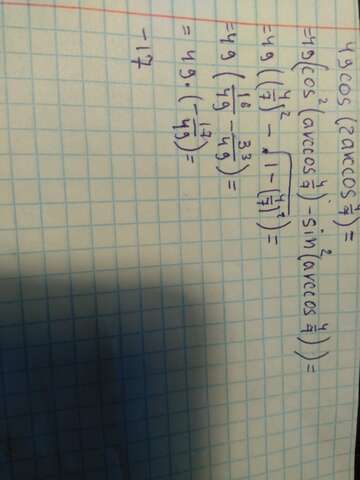 49cos(2arccos 4/7)=
=49(cos²(arccos 4/7)-sin²(arccos 4/7))=
=49((4/7)²-√(1-(4/7)²)=
=49(16/49-33/49)=
=49·(-17/49)=
-17